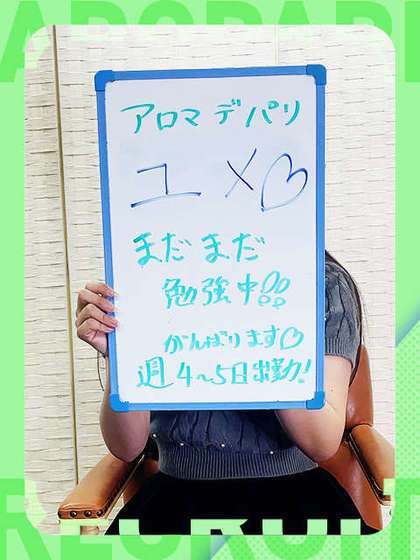 アロマデパリ
ユメ♡
まだまだ
勉強中!!
がんばります♡
週4~5日出勤!
RECRUIT